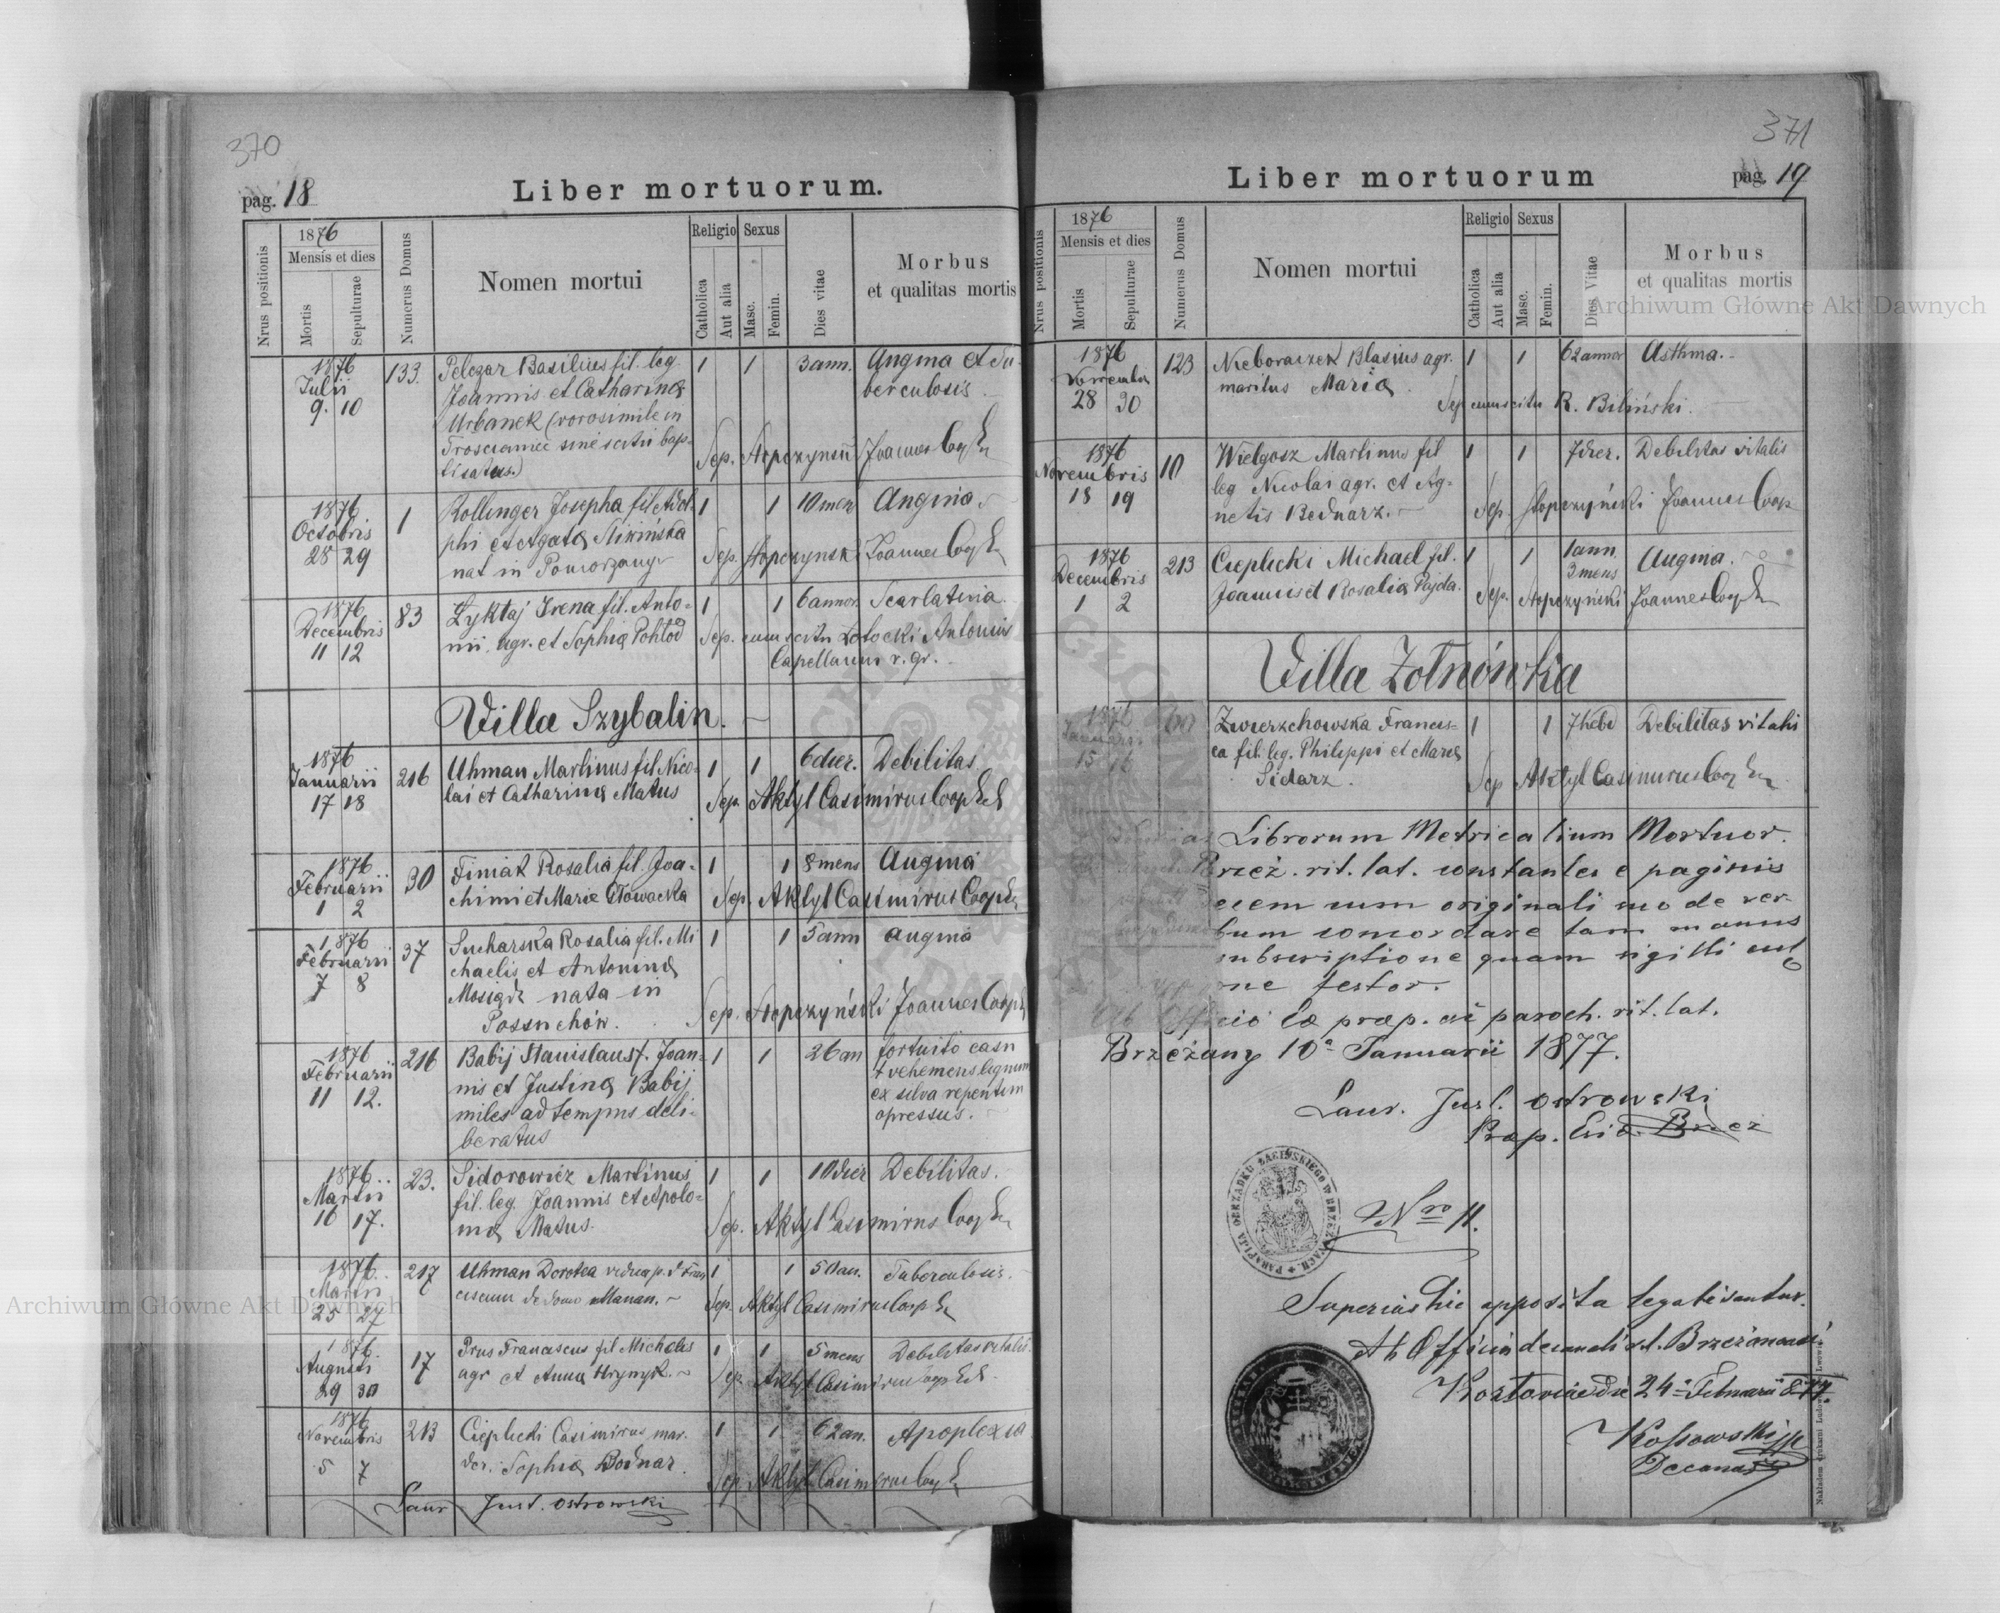 370
pag. 18
Liber mortuorum.
Nrus positionis
1876
Mensis et dies
Mortis
Sepulturae
Numerus Domus
Nomen mortui
Religio
Catholica
Aut alia
Sexus
Masc.
Femin.
Dies vitae
Morbus
et qualitas mortis
1876 Julii 9. 10
133.
Pelczar Basilius fil. leg.
Joannis et Catharinæ
Urbanek (verosimile in
Trościaniec sine scitu bap-
tisatus.)
1 1 3 ann.
Angina et Tu-
berculosis
Sep. Stopczynski Joannes Coop
1876 Octobris 28 29
1
Kollinger Josepha fil. Adol-
phi et Agatæ Slikińska
nat in Pomorzany
1 1 10 men
Angina
Sep. Stopczynski Joannes Coop
1876 Decembris 11 12
83
Łyktaj Irena fil. Anto-
nii agr. et Sophiæ Pohłód
1 1 6 annor. Scarlatina
Sep. cum scitu Łotocki Antonius
Capellanus r. gr.
Villa Szybalin.
1876 Januarii 17 18
216
Uhman Martinus fil. Nico-
lai et Catharinæ Matus
1 1 6 dier. Debilitas
Sep. Aktyl Casimirus Coop
1876 Februarii 1 2
30
Finiak Rosalia fil. Joa-
chimi et Mariæ Głowacka
1 1 8 mens Angina
Sep. Aktyl Casimirus Coop
1876 Februarii 7 8
37
Sucharska Rosalia fil. Mi
chaelis et Antoninæ
Mosiądz nata in
Posuchów.
1 1 5 ann angina
Sep. Stopczyński Joannes Coop
1876 Februarii 11 12.
216
Babij Stanislaus f. Joan-
nis et Justinæ Babij
miles ad tempus deli-
beratus
1 1 26 an
fortuito casu
vehemens lignum
ex silva repentim
opressus.
1876 Martii 16 17.
23.
Sidorowicz Martinus
fil. leg. Joannis et Apolo-
niæ Matus.
1 1 10 dier Debilitas.
Sep. Aktyl Casimirus Coop
1876 Martii 25 27
217
Uhman Dorotea vidua p. d Fran
ciscum de domo Manan.
1 1 50 an. Tuberculosis.
Sep. Aktyl Casimirus Coop
1876. Augusti 29 30
17
Prus Franciscus fil Michalis
agr et Anna Hrynyk.
1 1 5 mens Debilitas vitalis
Sep. Aktyl Casimirus Coop
1876 Novembris 5 7
213
Cieplicki Casimirus mar.
der. Sophiæ Bednar.
1 1 62 an. Apoplexia
Sep Aktyl Casimirus Coop
Laur Just. Ostrowski
371
Liber mortuorum
pag. 19
Nrus positionis
1876
Mensis et dies
Mortis
Sepulturae
Numerus Domus
Nomen mortui
Religio
Catholica
Aut alia
Sexus
Masc.
Femin.
Dies Vitae
Morbus
et qualitas mortis
1876 Novembr 28 30
123
Nieboraczek Blasius agr.
maritus Mariæ
1 1 62 annor Asthma.
Sep cum scitu R. Biliński.
1876 Novembris 18 19
10
Wielgosz Martinus fil
leg Nicolai agr. et Ag-
netis Bednarz.
1 1 7 dier. Debilitas vitalis
Sep. Stopczyński Joannes Coop
1876 Decembris 1 2
213
Cieplicki Michael fil.
Joannis et Rosaliæ Pajda.
1 1 1 ann. 3 mens Angina.
Sep. Stopczyński Joannes Coop
Villa Żołnówka
1876 Januarii 15 16
Zwierzchowska Francis-
ca fil. leg. Philippi et Mariæ
Sidarz.
1 1 7 hebd Debilitas vitalis
Sep Aktyl Casimirus Coop
Librorum Metricalium Mortuor.
Brzeż. rit. lat. constantes e paginis
cum originali mo de ver-
bum concordare tam manus
subscriptione quam sigilli
testor.
Ab Officio præp. paroch. rit. lat.
Brzeżany 10 Januarii 1877.
Laur. Just. Ostrowski
Præp.
PARAFIJA OBRZĄDKU ŁACIŃSKIEGO W BRZEŻANACH
Nro 11.
Superius hic apposita legalisantur.
Ab Officio decanali r.l. Brzeżanensi
Kozłowiæ die 24 Februarii 877
Kossowski
Decanus
Archiwum Główne Akt Dawnych
Archiwum Główne Akt Dawnych